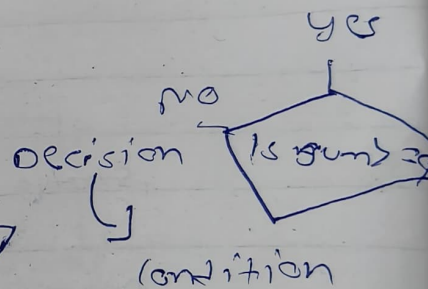 yes
No
Decision
Is num> =
Condition